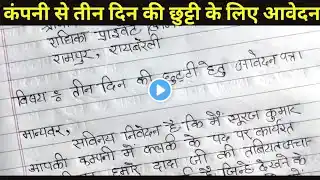 कंपनी से तीन दिन की छुट्टी के लिए आवेदन
राधिका प्राइवेट
रामपुर, रायबरेली
विषय : तीन दिन की छुट्टी हेतु आवेदन पत्र
मान्यवर, सविनय निवेदन है कि मैं सूरज कुमार
आपकी कम्पनी में क्लर्क के पद पर कार्यरत
हमारे दादा जी की तबियत
जिन्हें देखने के